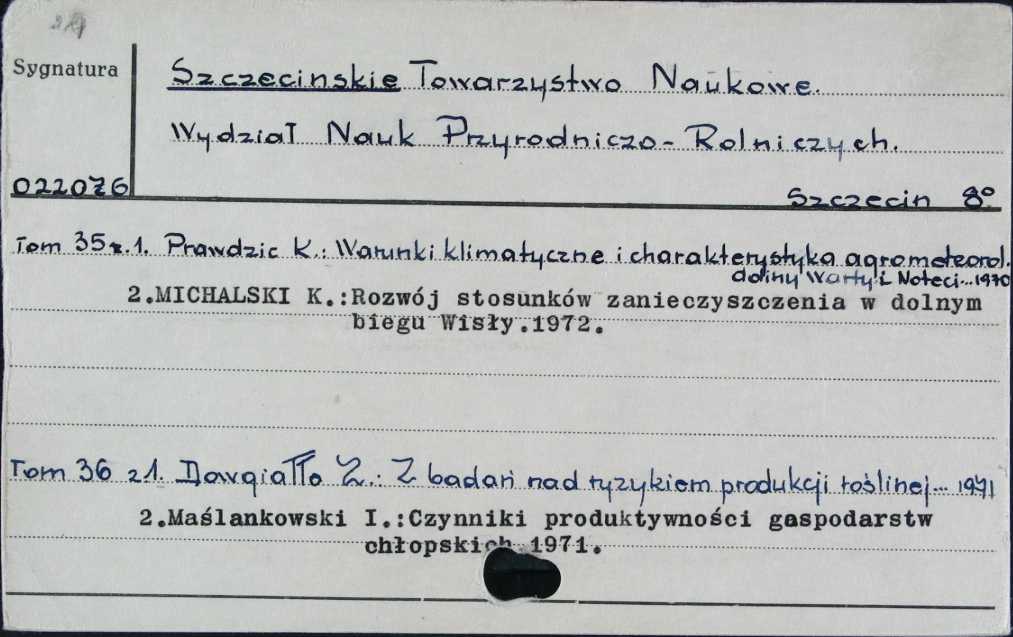 Sygnatura
Szczecinskie Towarzystwo Naukowe.
Wydział Nauk Przyrodniczo-Rolniczych.
022076
Szczecin 8º
Tom 35 z.1. Prawdzic K.: Warunki klimatyczne i charakterystyka agrometeorol.
doliny Warty i Noteci... 1970
2.MICHALSKI K.:Rozwój stosunków zanieczyszczenia w dolnym
biegu Wisły.1972.
Tom 36 z1. Dowgiałło Z.: Z badań nad ryzykiem produkcji roślinej... 1971
2.Maślankowski I.:Czynniki produktywności gospodarstw
chłopskich 1971.